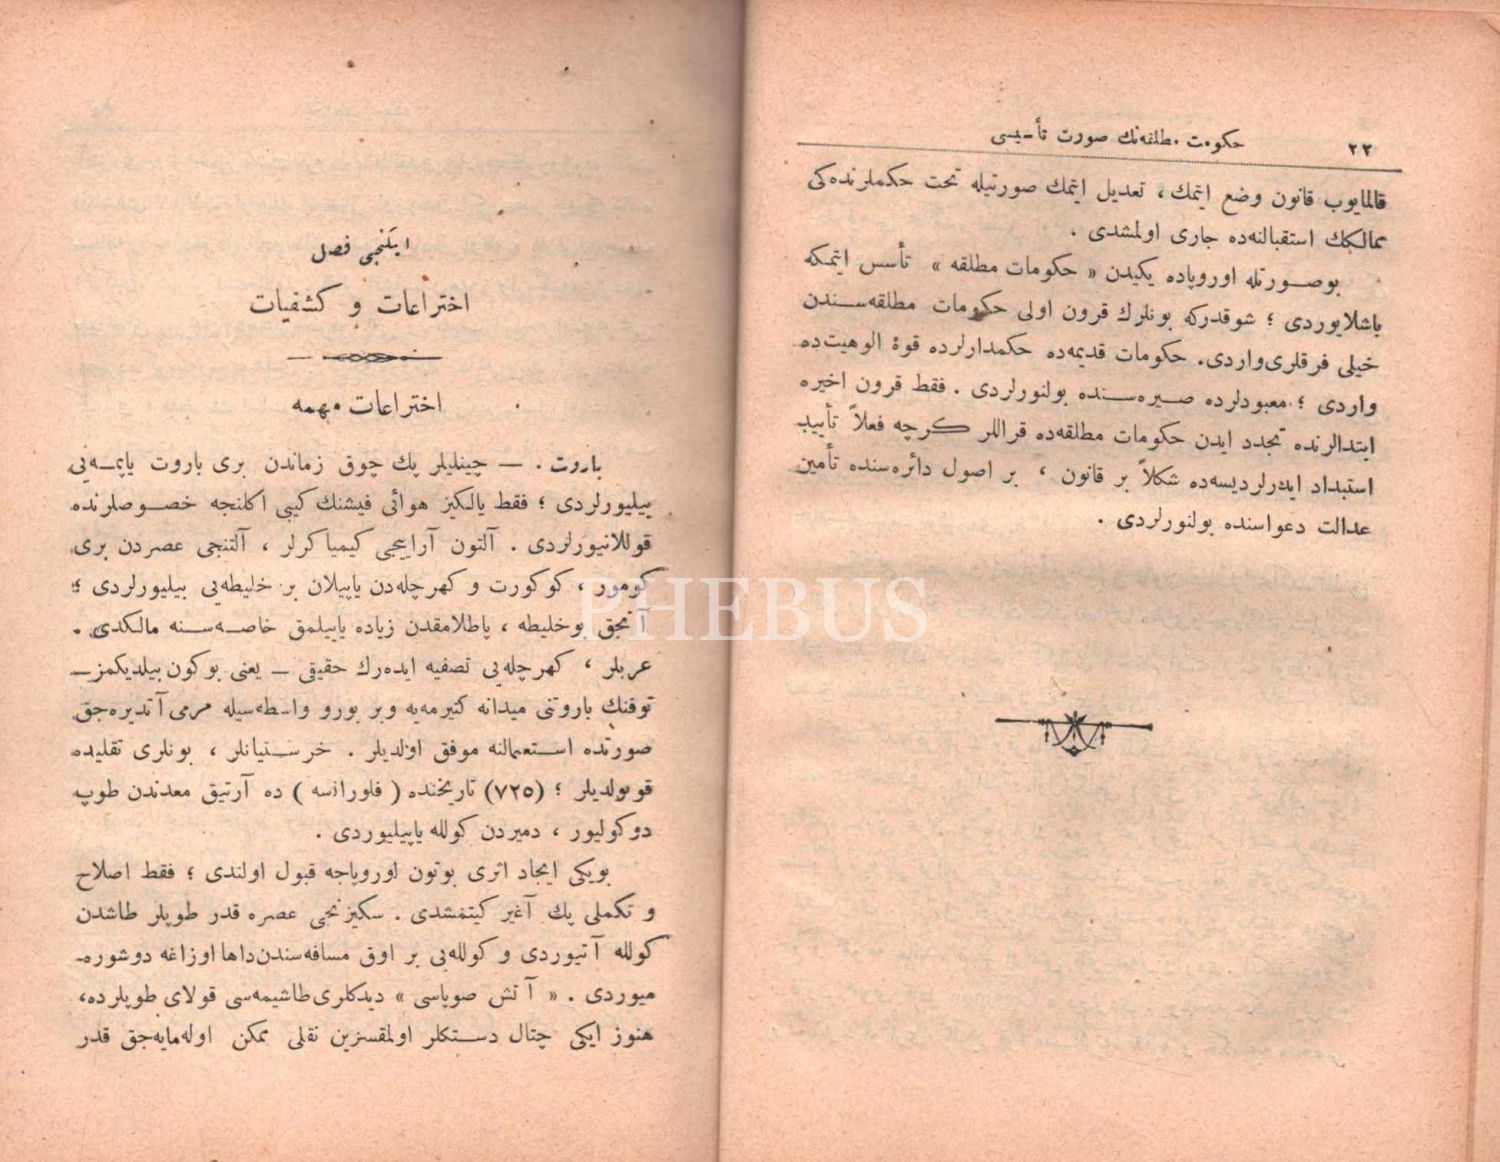 ٢٢ حكومت مطلقه‌نك صورت تأسيسى
قالمايوب قانون وضع ايتمك ، تعديل ايتمك صورتيله تحت حكملرنده‌كى
ممالكك استقبالنه‌ده جارى اولمشدى .
بوصورتله اوروپاده يكيدن « حكومات مطلقه » تأسس ايتمكه
باشلايوردى ؛ شوقدركه بونلرك قرون اولى حكومات مطلقه‌سندن
خيلى فرقلرى‌واردى. حكومات قديمه‌ده حكمدارلرده قوۀ الوهيت‌ده
واردى ؛ معبودلرده صيره‌سنده بولنورلردى . فقط قرون اخيره
ابتدالرنده تجدد ايدن حكومات مطلقه‌ده قراللر كرچه فعلاً تأييد
استبداد ايدرلرديسه‌ده شكلاً بر قانون ، بر اصول دائره‌سنده تأمين
عدالت دعواسنده بولنورلردى .
ايكنجى فصل
اختراعات و كشفيات
اختراعات مهمه
باروت . — چينليلر پك چوق زماندن برى باروت ياپمه‌يى
بيليورلردى ؛ فقط يالكيز هوائى فيشنك كيبى اكلنجه خصوصلرنده
قوللانيورلردى . آلتون آراييجى كيمياكرلر ، آلتنجى عصردن برى
كومور ، كوكورت و كهرچله‌دن ياپيلان بر خليطه‌يى بيليورلردى ؛
آنجق بوخليطه ، پاطلامقدن زياده يابيلمق خاصه‌سنه مالكدى .
عربلر ، كهرچله‌يى تصفيه ايده‌رك حقيقى — يعنى بوكون بيلديكمز —
توفنك باروتنى ميدانه كتيرمه‌يه وبر بورو واسطه‌سيله مرمى آتديره‌جق
صورتده استعمالنه موفق اولديلر . خرستيانلر ، بونلرى تقليده
قويولديلر ؛ (٧٢٥) تاريخنده ( فلورانسه ) ده آرتيق معدندن طوپ
دوكوليور ، دميردن كولله ياپيليوردى .
بويكى ايجاد اثرى بوتون اوروپاجه قبول اولندى ؛ فقط اصلاح
و تكملى پك آغير كيتمشدى . سكيزنجى عصره قدر طوپلر طاشدن
كولله آتيوردى و كولله‌يى بر اوق مسافه‌سندن‌داها اوزاغه دوشوره‌-
ميوردى . « آتش صوپاسى » ديدكلرى‌طاشيمه‌سى قولاى طوپلرده،
هنوز ايكى چتال دستكلر اولمقسزين نقلى ممكن اوله‌مايه‌جق قدر
PHEBUS